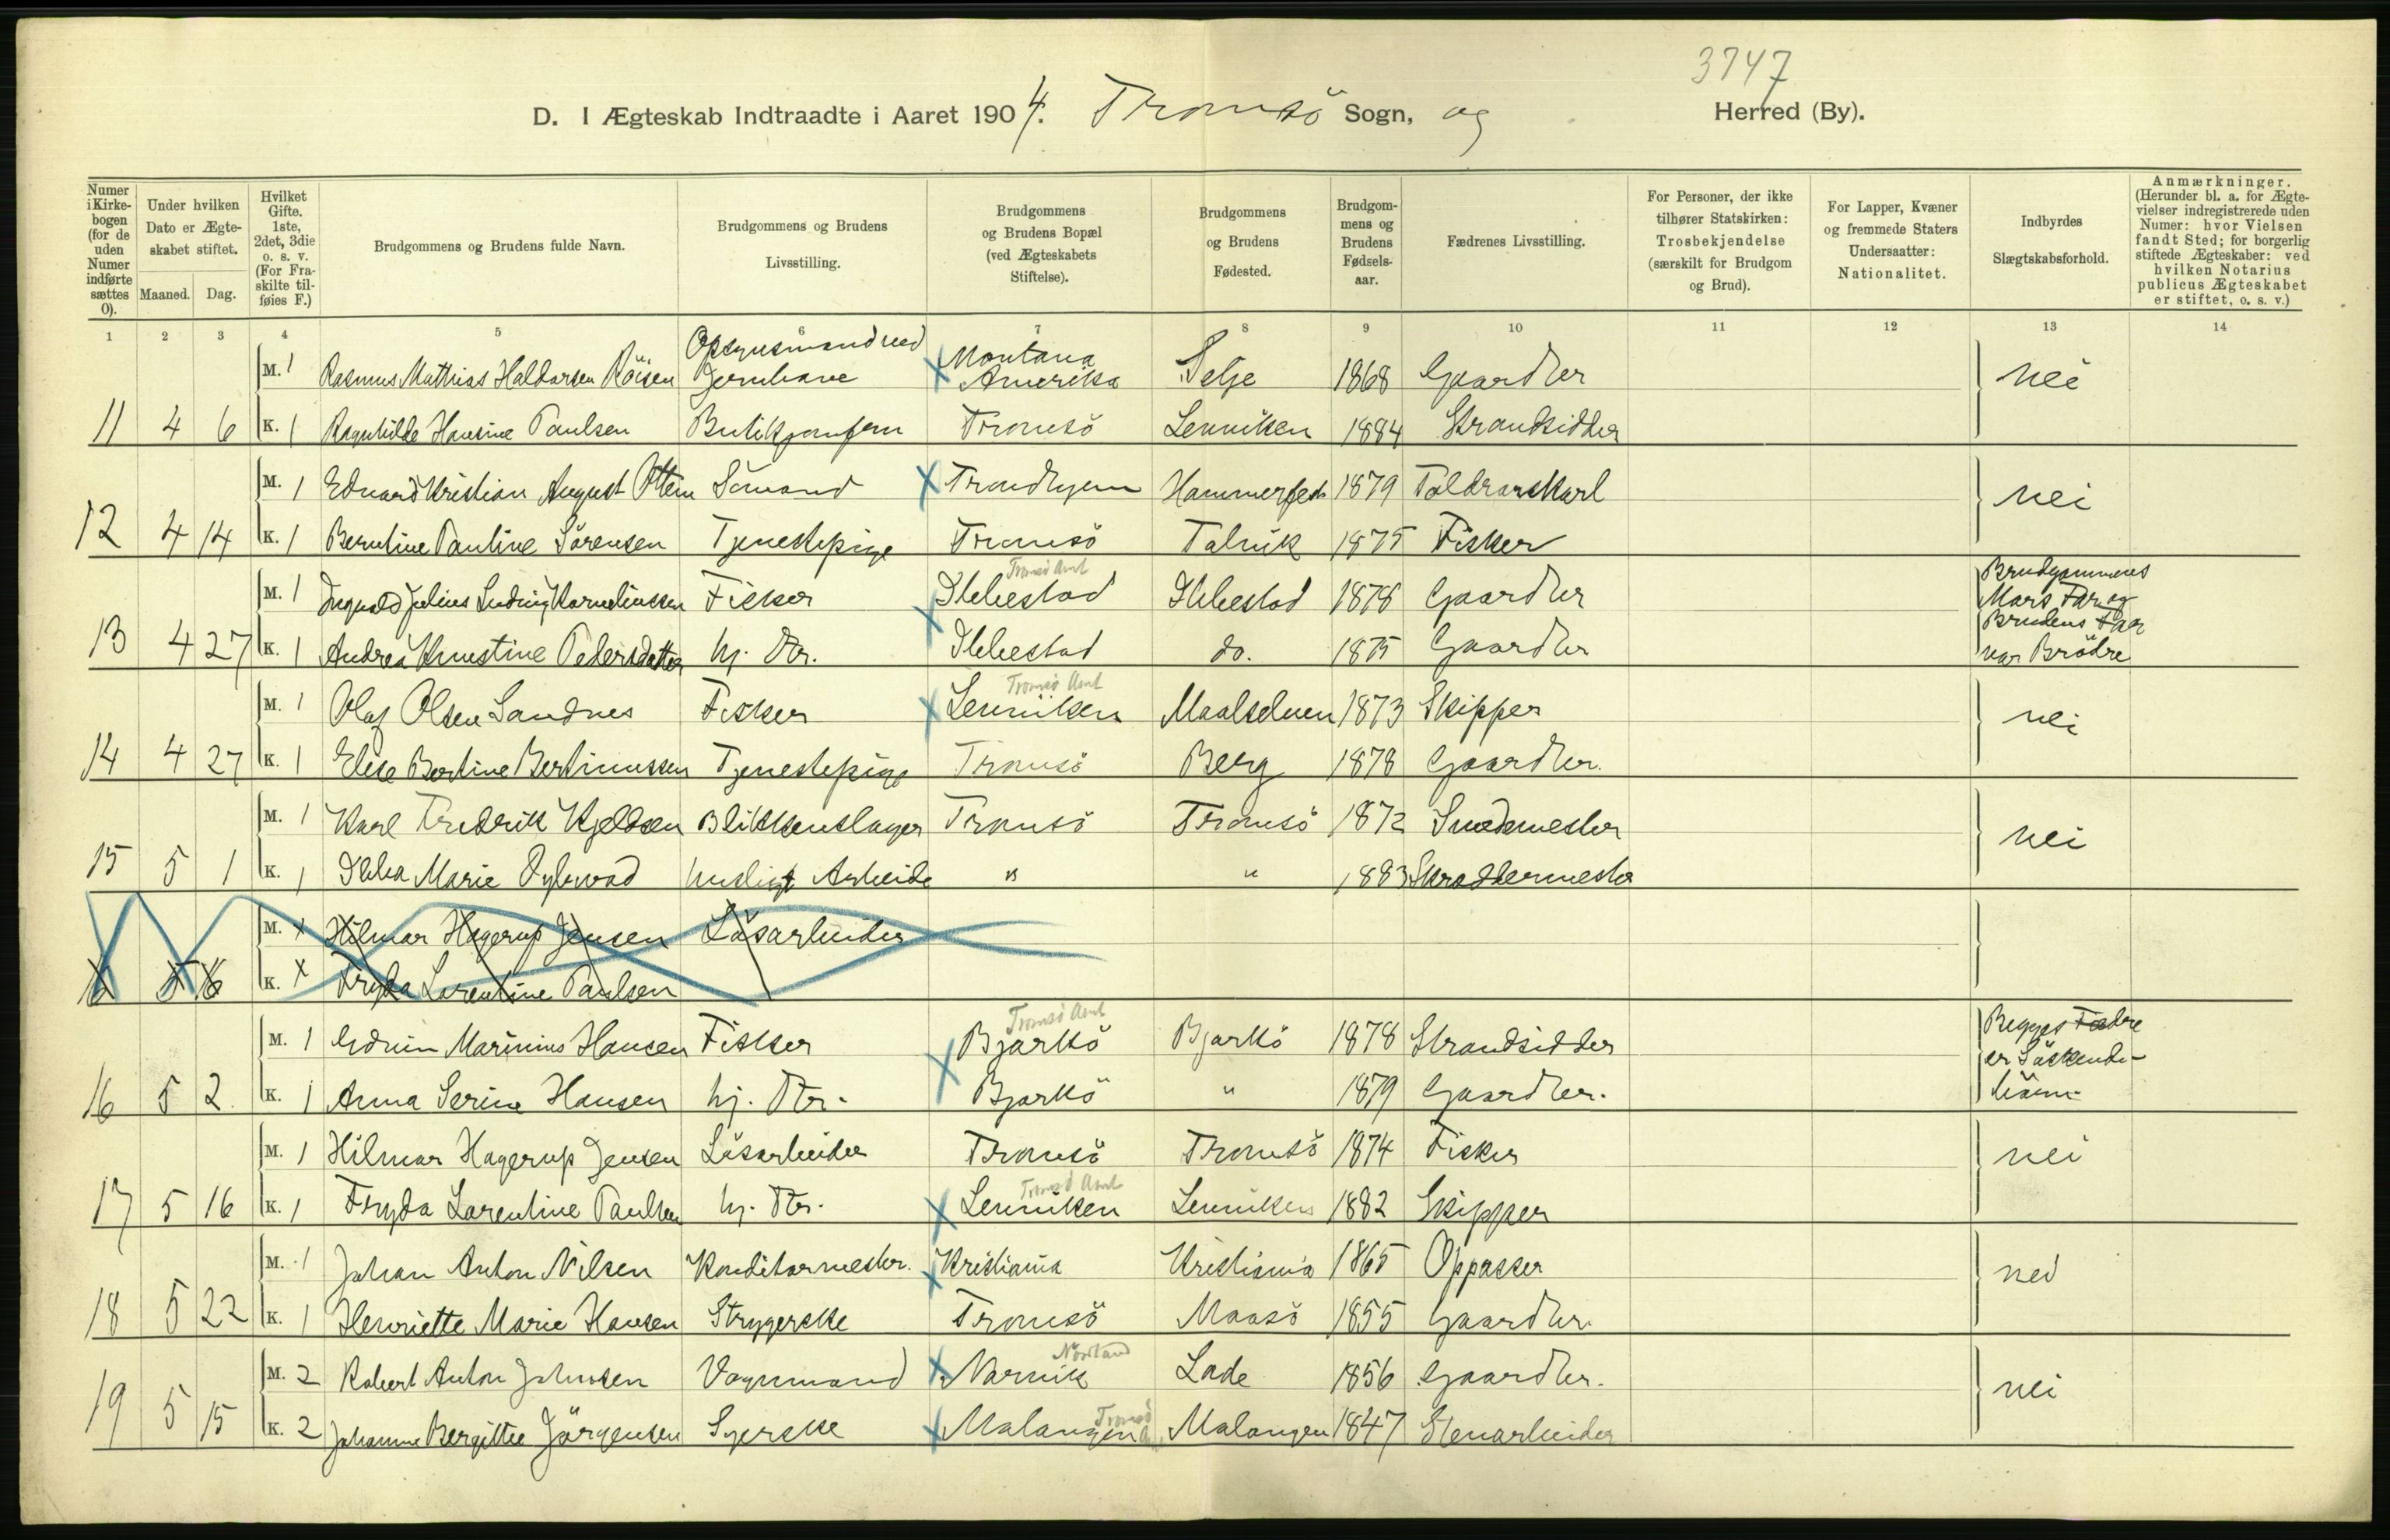 3747
D. I Ægteskab Indtraadte i Aaret 1904. Tromsö Sogn, og Herred (By).
Numer i Kirkebogen (for de uden Numer indførte sættes 0).
Under hvilken Dato er Ægteskabet stiftet.
Maaned. Dag.
Hvilket Gifte. 1ste, 2det, 3die o. s. v. (For Fraskilte tilføies F.)
Brudgommens og Brudens fulde Navn.
Brudgommens og Brudens Livsstilling.
Brudgommens og Brudens Bopæl (ved Ægteskabets Stiftelse).
Brudgommens og Brudens Fødested.
Brudgommens og Brudens Fødselsaar.
Fædrenes Livsstilling.
For Personer, der ikke tilhører Statskirken: Trosbekjendelse (særskilt for Brudgom og Brud).
For Lapper, Kvæner og fremmede Staters Undersaatter: Nationalitet.
Indbyrdes Slægtskabsforhold.
Anmærkninger. (Herunder bl. a. for Ægtevielser indregistrerede uden Numer: hvor Vielsen fandt Sted; for borgerlig stiftede Ægteskaber: ved hvilken Notarius publicus Ægteskabet er stiftet, o. s. v.)
1 2 3 4 5 6 7 8 9 10 11 12 13 14
M. 1 Rasmus Mathias Haldorsen Röisen Opsynsmand ved Jernbane Montana Amerika Selje 1868 Gaardbr nei
11 4 6 K. 1 Ragnhilde Hansine Paulsen Butikjomfru Tromsö Lenviken 1884 Strandsidder
M. 1 Edvard Kristian August Ottem Sömand Trondhjem Hammerfest 1879 Toldrorskarl nei
12 4 14 K. 1 Berntine Pauline Sörensen Tjenestepige Tromsö Talvik 1875 Fisker
M. 1 Ingvald Julius Ludvig Korneliussen Fisker Ibbestad Tromsö Amt Ibbestad 1878 Gaardbr Brudgommens Mors Far og Brudens Far var Brödre
13 4 27 K. 1 Andrea Ernestine Pedersdatter hj. Dtr. Ibbestad do. 1875 Gaardbr
M. 1 Olaf Olsen Sandnes Fisker Lenviken Tromsö Amt Maalselven 1873 Skipper nei
14 4 27 K. 1 Elise Bertine Bertinussen Tjenestepige Tromsö Berg 1878 Gaardbr.
M. 1 Karl Fredrik Kjeldsen Blikkenslager Tromsö Tromsö 1872 Smedemester nei
15 5 1 K. 1 Ebba Marie Dybwad husligt Arbeide " " 1883 Skræddermester
M. 1 Hilmar Hagerup Jensen Lösarbeider
16 5 16 K. 1 Fryda Larentine Paulsen
M. 1 Edvin Marinius Hansen Fisker Bjarkö Tromsö Amt Bjarkö 1878 Strandsidder Begges Fædre er Söskendebörn
16 5 2. K. 1 Anna Serine Hansen hj. Dtr. Bjarkö " 1879 Gaardbr.
M. 1 Hilmar Hagerup Jensen Lösarbeider Tromsö Tromsö 1874 Fisker nei
17 5 16 K. 1 Fryda Larentine Paulsen hj. Dtr. Lenviken Tromsö Amt Lenviken 1882 Skipper
M. 1 Johan Anton Nilsen Konditormester. Kristiania Kristiania 1865 Oppasser nei
18 5 22 K. 1 Henriette Marie Hansen Strygerske Tromsö Maasö 1855 Gaardbr.
M. 2 Robert Anton Johnsen Vognmand Narvik Nordland Lade 1856 Gaardbr. nei
19 5 15 K. 2 Johanne Bergitte Jörgensen Syerske Malangen Tromsö A. Malangen 1847 Stenarbeider